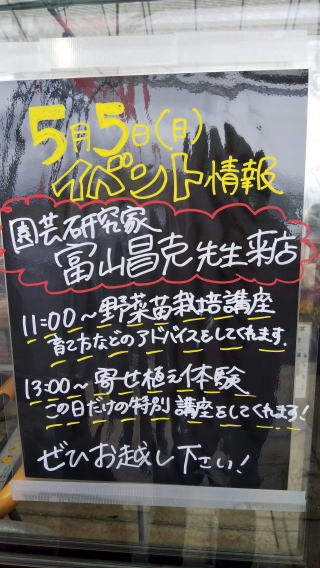 5月5日(日)
イベント情報
園芸研究家
富山昌克先生来店
11:00～野菜苗栽培講座
育て方などのアドバイスをしてくれます。
13:00～寄せ植え体験
この日だけの特別講座をしてくれます!
ぜひお越し下さい!